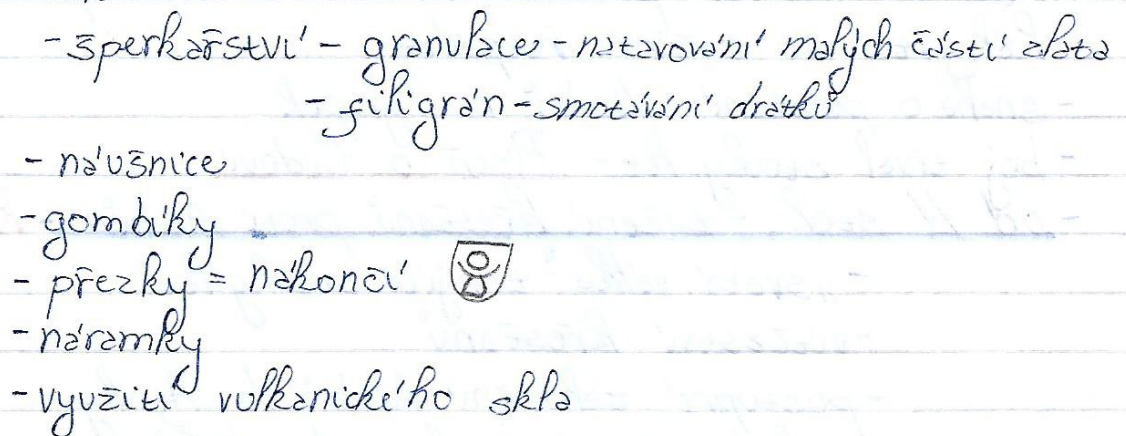 - šperkařství - granulace - natavování malých částí zlata
- filigrán - smotávání drátků
- náušnice
- gombíky
- přezky = nákončí
- náramky
- využití vulkanického skla